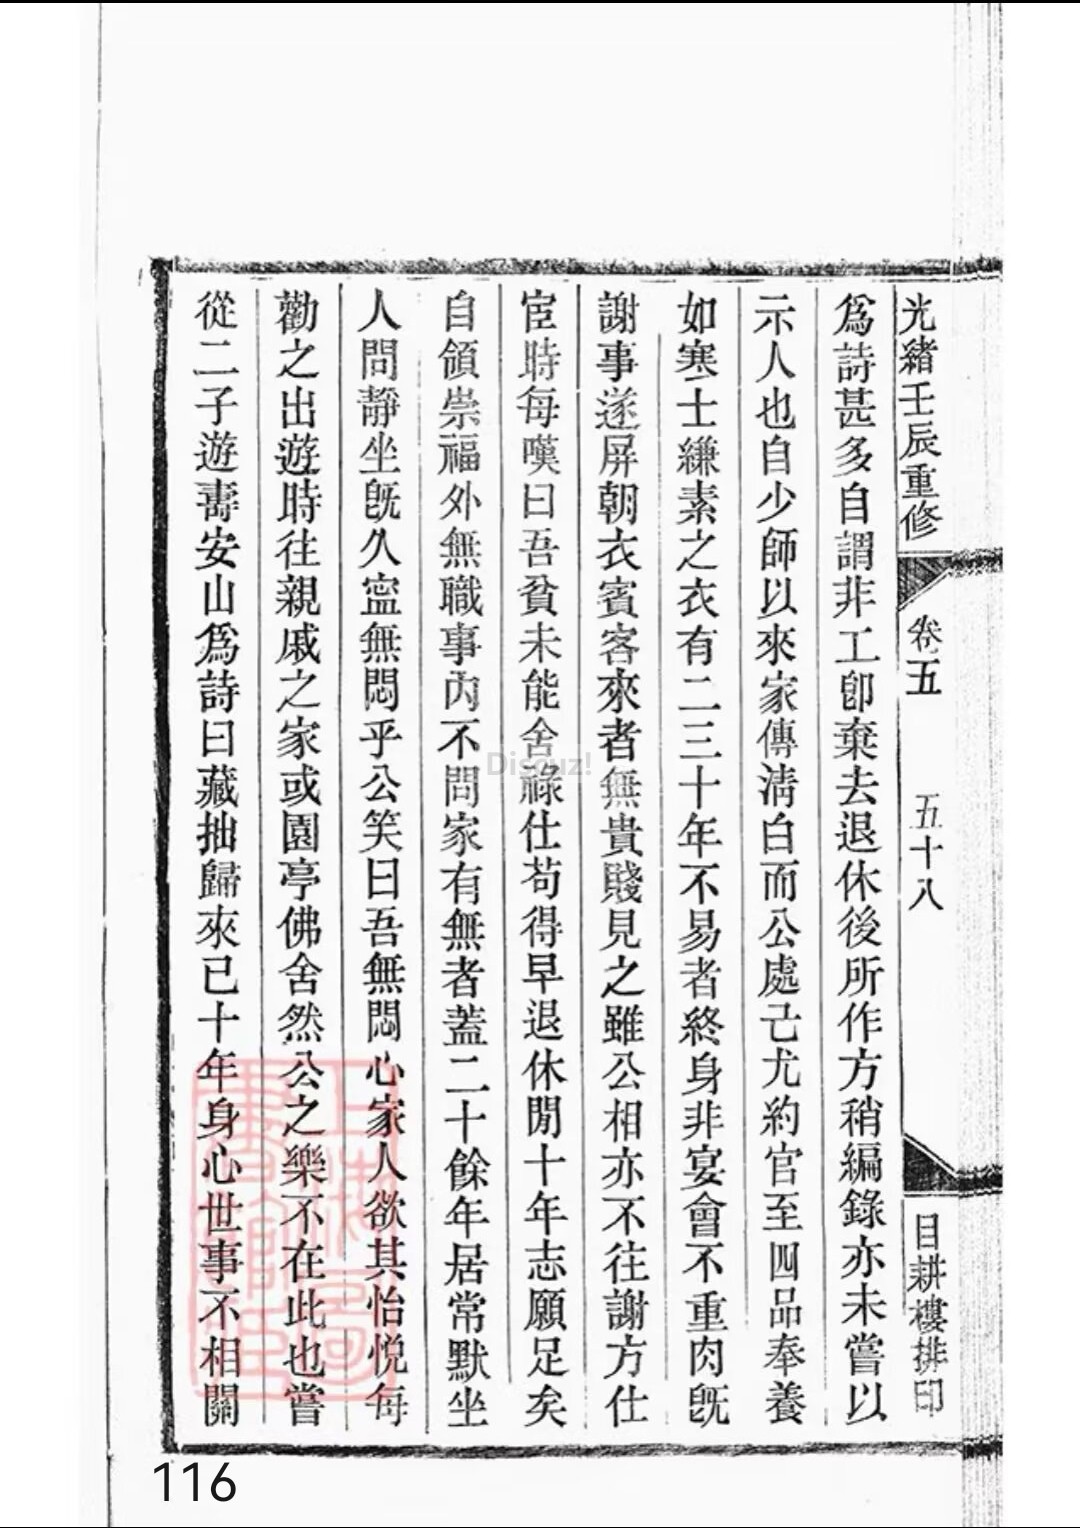 光緒壬辰重修 卷五 五十八 目耕樓排印
爲詩甚多自謂非工卽棄去退休後所作方稍編錄亦未嘗以
示人也自少師以來家傳清白而公處己尤約官至四品奉養
如寒士縑素之衣有二三十年不易者終身非宴會不重肉旣
謝事遂屏朝衣賓客來者無貴賤見之雖公相亦不往謝方仕
宦時每嘆曰吾貧未能舍祿仕苟得早退休閒十年志願足矣
自領崇福外無職事內不問家有無者蓋二十餘年居常默坐
人問靜坐旣久寍無悶乎公笑曰吾無悶心家人欲其怡悅每
勸之出遊時往親戚之家或園亭佛舍然公之樂不在此也嘗
從二子遊壽安山爲詩曰藏拙歸來已十年身心世事不相關
上海圖書館藏
Discuz!
116